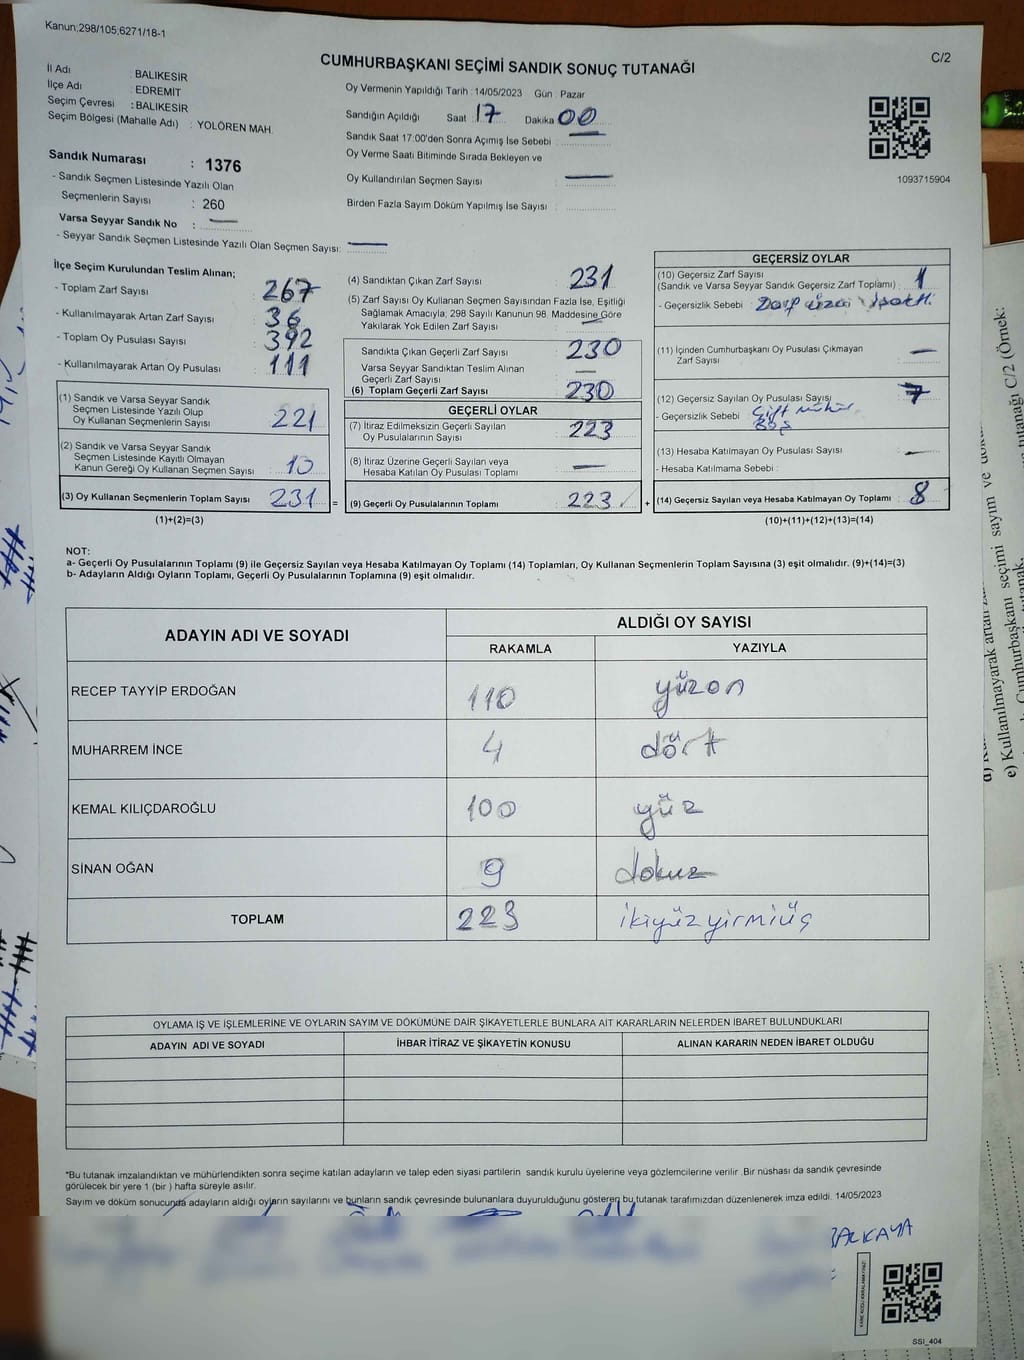 Kanun;298/105;6271/18-1
C/2
CUMHURBAŞKANI SEÇİMİ SANDIK SONUÇ TUTANAĞI
İl Adı : BALIKESİR
İlçe Adı : EDREMİT
Seçim Çevresi : BALIKESİR
Seçim Bölgesi (Mahalle Adı) : YOLÖREN MAH.
Sandık Numarası : 1376
- Sandık Seçmen Listesinde Yazılı Olan
Seçmenlerin Sayısı : 260
Varsa Seyyar Sandık No : —
- Seyyar Sandık Seçmen Listesinde Yazılı Olan Seçmen Sayısı: —
Oy Vermenin Yapıldığı Tarih : 14/05/2023 Gün : Pazar
Sandığın Açıldığı Saat 17 Dakika 00
Sandık Saat 17:00'den Sonra Açımış İse Sebebi : —
Oy Verme Saati Bitiminde Sırada Bekleyen ve
Oy Kullandırılan Seçmen Sayısı : —
Birden Fazla Sayım Döküm Yapılmış İse Sayısı :
1093715904
İlçe Seçim Kurulundan Teslim Alınan;
- Toplam Zarf Sayısı : 267
- Kullanılmayarak Artan Zarf Sayısı : 36
- Toplam Oy Pusulası Sayısı : 392
- Kullanılmayarak Artan Oy Pusulası : 111
(1) Sandık ve Varsa Seyyar Sandık
Seçmen Listesinde Yazılı Olup
Oy Kullanan Seçmenlerin Sayısı : 221
(2) Sandık ve Varsa Seyyar Sandık
Seçmen Listesinde Kayıtlı Olmayan
Kanun Gereği Oy Kullanan Seçmen Sayısı : 10
(3) Oy Kullanan Seçmenlerin Toplam Sayısı : 231 =
(1)+(2)=(3)
(4) Sandıktan Çıkan Zarf Sayısı : 231
(5) Zarf Sayısı Oy Kullanan Seçmen Sayısından Fazla İse, Eşitliği
Sağlamak Amacıyla; 298 Sayılı Kanunun 98. Maddesine Göre
Yakılarak Yok Edilen Zarf Sayısı : —
Sandıkta Çıkan Geçerli Zarf Sayısı : 230
Varsa Seyyar Sandıktan Teslim Alınan
Geçerli Zarf Sayısı : —
(6) Toplam Geçerli Zarf Sayısı : 230
GEÇERLİ OYLAR
(7) İtiraz Edilmeksizin Geçerli Sayılan
Oy Pusulalarının Sayısı : 223
(8) İtiraz Üzerine Geçerli Sayılan veya
Hesaba Katılan Oy Pusulası Toplamı : —
(9) Geçerli Oy Pusulalarının Toplamı : 223 +
GEÇERSİZ OYLAR
(10) Geçersiz Zarf Sayısı
(Sandık ve Varsa Seyyar Sandık Geçersiz Zarf Toplamı) : 1
- Geçersizlik Sebebi : Zarf üzeri işaretli
(11) İçinden Cumhurbaşkanı Oy Pusulası Çıkmayan
Zarf Sayısı : —
(12) Geçersiz Sayılan Oy Pusulası Sayısı : 7
- Geçersizlik Sebebi : Çift mühür
Boş
(13) Hesaba Katılmayan Oy Pusulası Sayısı : —
- Hesaba Katılmama Sebebi :
(14) Geçersiz Sayılan veya Hesaba Katılmayan Oy Toplamı : 8
(10)+(11)+(12)+(13)=(14)
NOT:
a- Geçerli Oy Pusulalarının Toplamı (9) ile Geçersiz Sayılan veya Hesaba Katılmayan Oy Toplamı (14) Toplamları, Oy Kullanan Seçmenlerin Toplam Sayısına (3) eşit olmalıdır. (9)+(14)=(3)
b- Adayların Aldığı Oyların Toplamı, Geçerli Oy Pusulalarının Toplamına (9) eşit olmalıdır.
ADAYIN ADI VE SOYADI
ALDIĞI OY SAYISI
RAKAMLA YAZIYLA
RECEP TAYYİP ERDOĞAN 110 yüzon
MUHARREM İNCE 4 dört
KEMAL KILIÇDAROĞLU 100 yüz
SİNAN OĞAN 9 dokuz
TOPLAM 223 ikiyüzyirmiüç
OYLAMA İŞ VE İŞLEMLERİNE VE OYLARIN SAYIM VE DÖKÜMÜNE DAİR ŞİKAYETLERLE BUNLARA AİT KARARLARIN NELERDEN İBARET BULUNDUKLARI
ADAYIN ADI VE SOYADI İHBAR İTİRAZ VE ŞİKAYETİN KONUSU ALINAN KARARIN NEDEN İBARET OLDUĞU
*Bu tutanak imzalandıktan ve mühürlendikten sonra seçime katılan adayların ve talep eden siyasi partilerin sandık kurulu üyelerine veya gözlemcilerine verilir. Bir nüshası da sandık çevresinde
görülecek bir yere 1 (bir ) hafta süreyle asılır.
Sayım ve döküm sonucunda adayların aldığı oyların sayılarını ve bunların sandık çevresinde bulunanlara duyurulduğunu gösteren bu tutanak tarafımızdan düzenlenerek imza edildi. 14/05/2023
BALKAYA
KARE KODU KARALAMAYINIZ!
SSI_404
e) Kullanılmayarak artan
tutanağı C/2 (Örnek:
Cumhurbaşkanı seçimi sayım ve
tutanak.